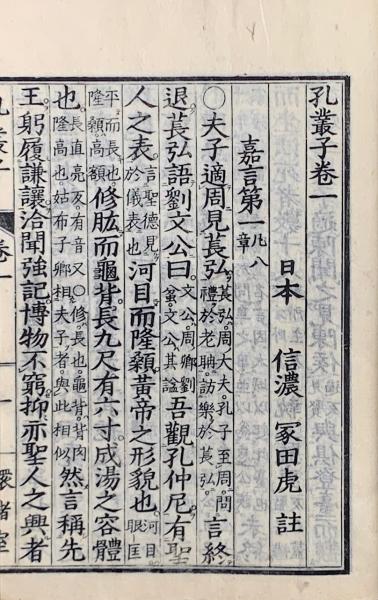 孔叢子卷一
日本 信濃 冢田虎 註
嘉言第一凡八章
○夫子適周見萇弘萇弘周大夫孔子至周問禮於老聃訪樂於萇弘言終
退萇弘語劉文公曰文公周卿劉蚠文公其諡吾觀孔仲尼有聖
人之表言聖德見於儀表也河目而隆顙黃帝之形貌也河目眶
平而長也隆顙高額修肱而龜背長九尺有六寸成湯之容體
也長直亮反有音又○修長也龜背背肉隆高也姑布子卿相夫子者與此相似然言稱先
王躬履謙讓洽聞強記博物不窮抑亦聖人之興者
卷一
環堵室